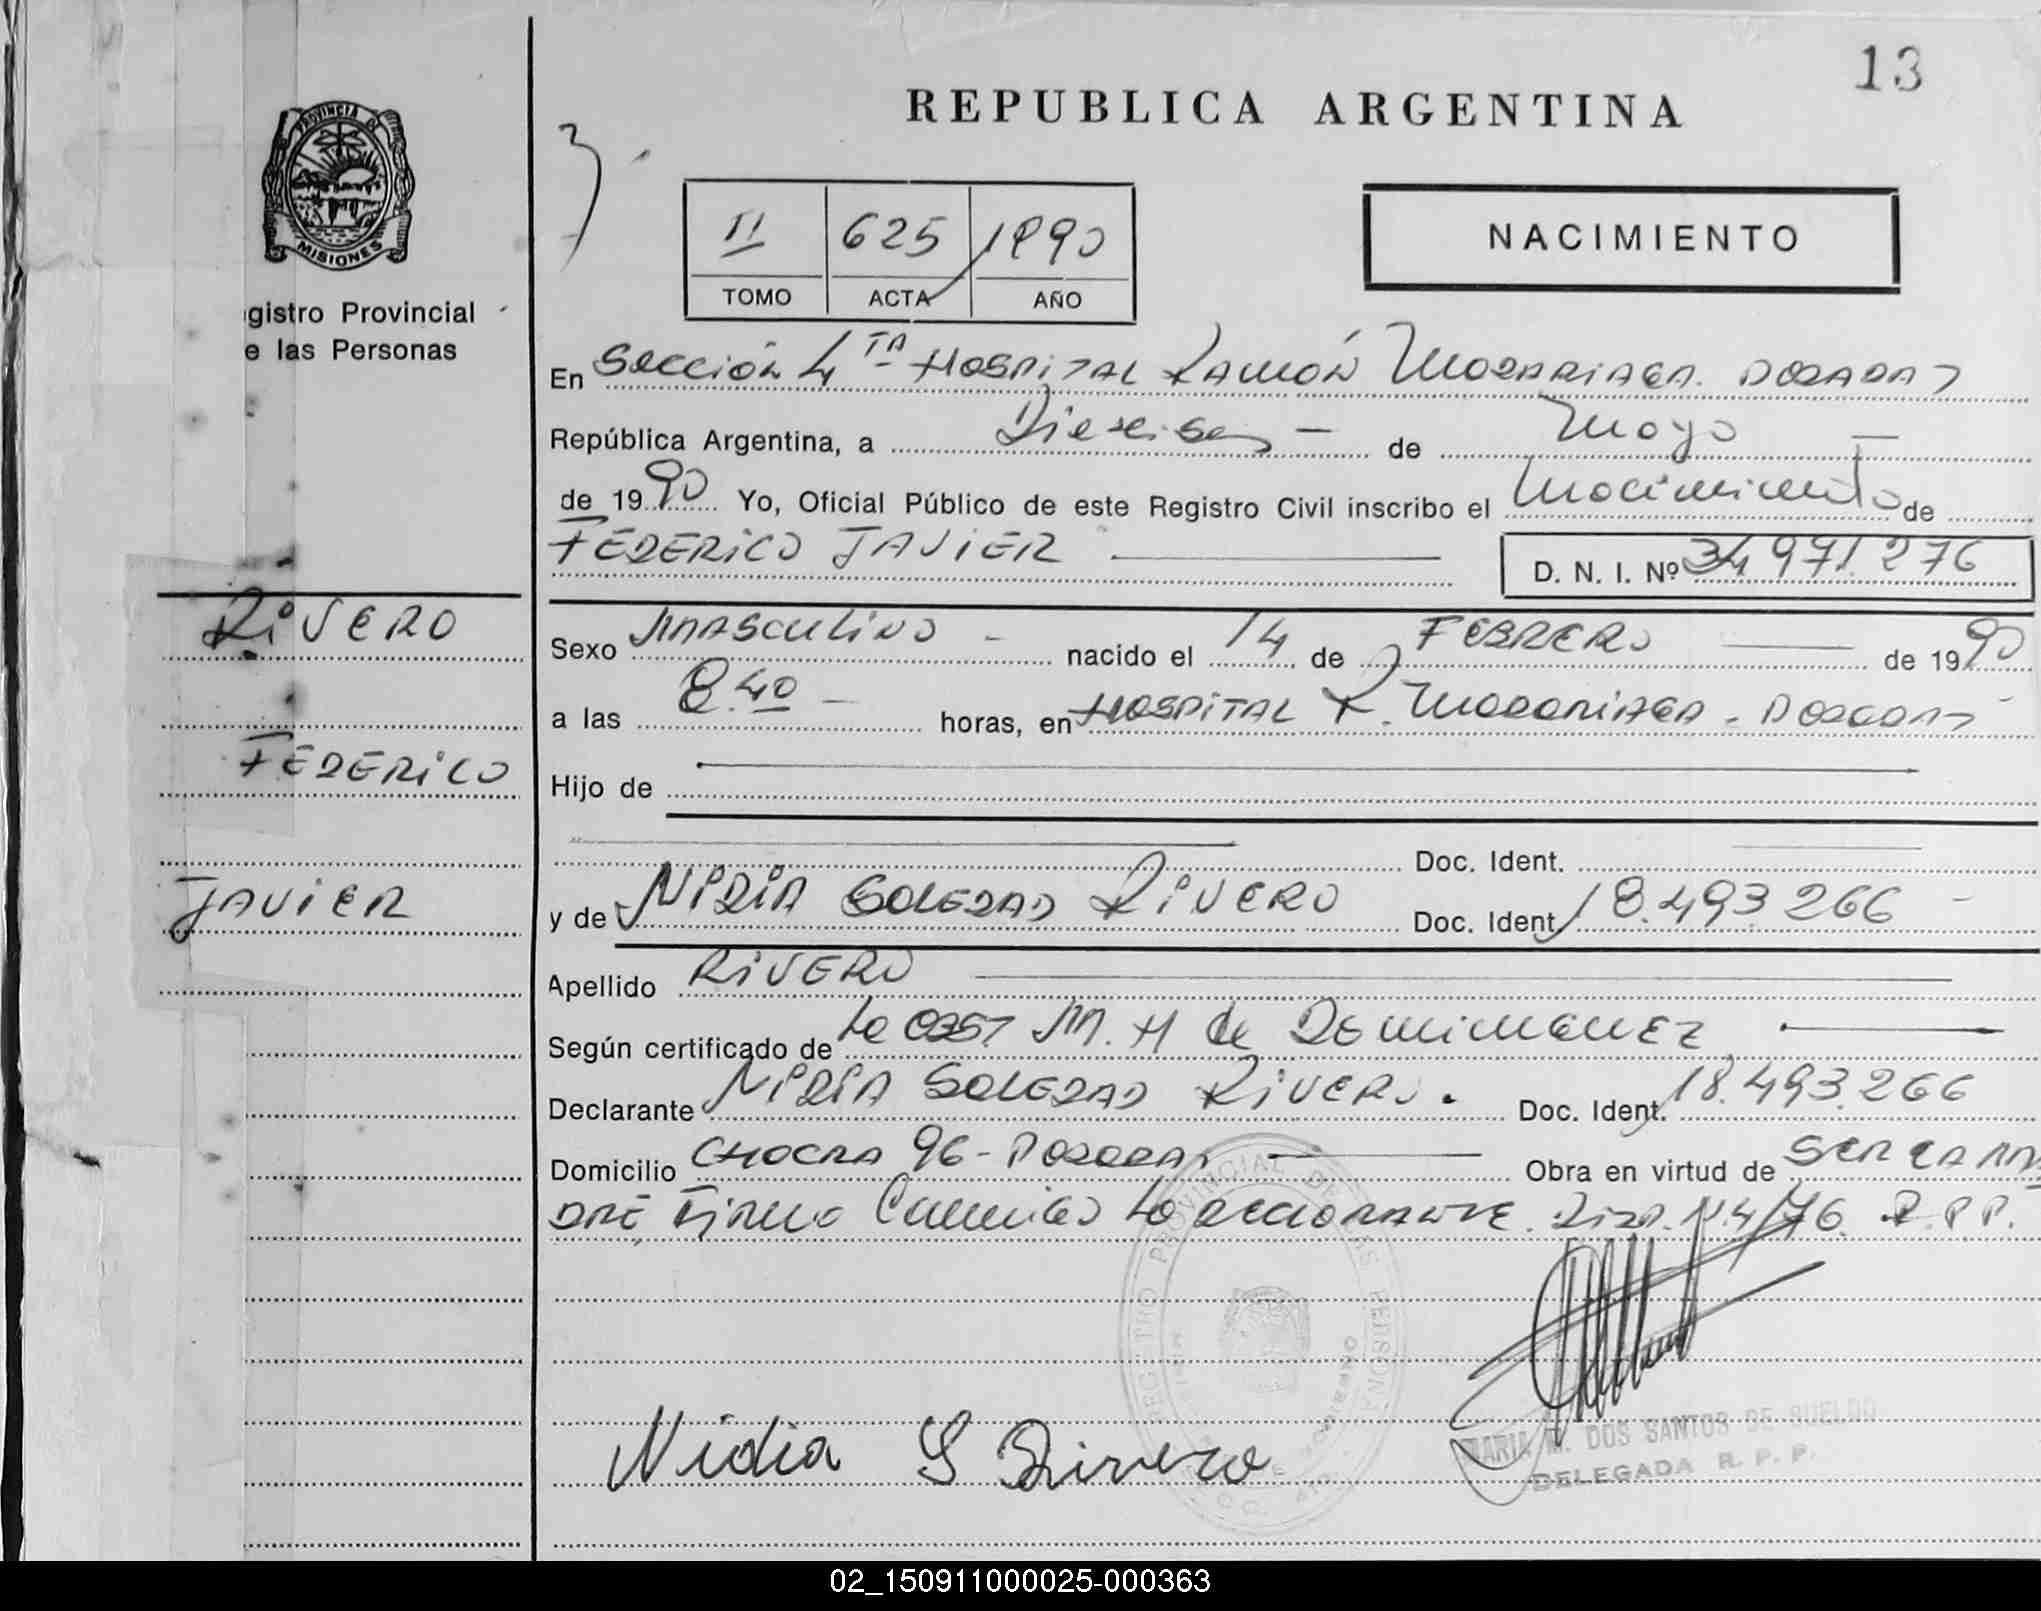 13
REPUBLICA ARGENTINA
PROVINCIA DE
MISIONES
gistro Provincial
e las Personas
II 625 1990
TOMO ACTA AÑO
NACIMIENTO
En Sección 4TA - HOSPITAL RAMÓN MADARIAGA. POSADAS
República Argentina, a Dieciseis - de Mayo -
de 1990 Yo, Oficial Público de este Registro Civil inscribo el Nacimiento de
FEDERICO JAVIER
D. N. I. Nº 34 971.276
RIVERO
FEDERICO
JAVIER
Sexo MASCULINO - nacido el 14 de FEBRERO de 1990
a las 8.40 - horas, en HOSPITAL R. MADARIAGA - POSADAS
Hijo de
Doc. Ident.
y de NIDIA SOLEDAD RIVERO Doc. Ident. 18.493.266 -
Apellido RIVERO
Según certificado de La M. H de
Declarante NIDIA SOLEDAD RIVERO. Doc. Ident. 18.493.266
Domicilio CHACRA 96 - POSADAS Obra en virtud de
FIRMA Conmigo LA DECLARANTE. N.4/76 R.P.P.
REGISTRO PROVINCIAL DE LAS PERSONAS
Nidia S Rivero
MARIA M. DOS SANTOS DE SUELDO
DELEGADA R. P. P.
02_150911000025-000363